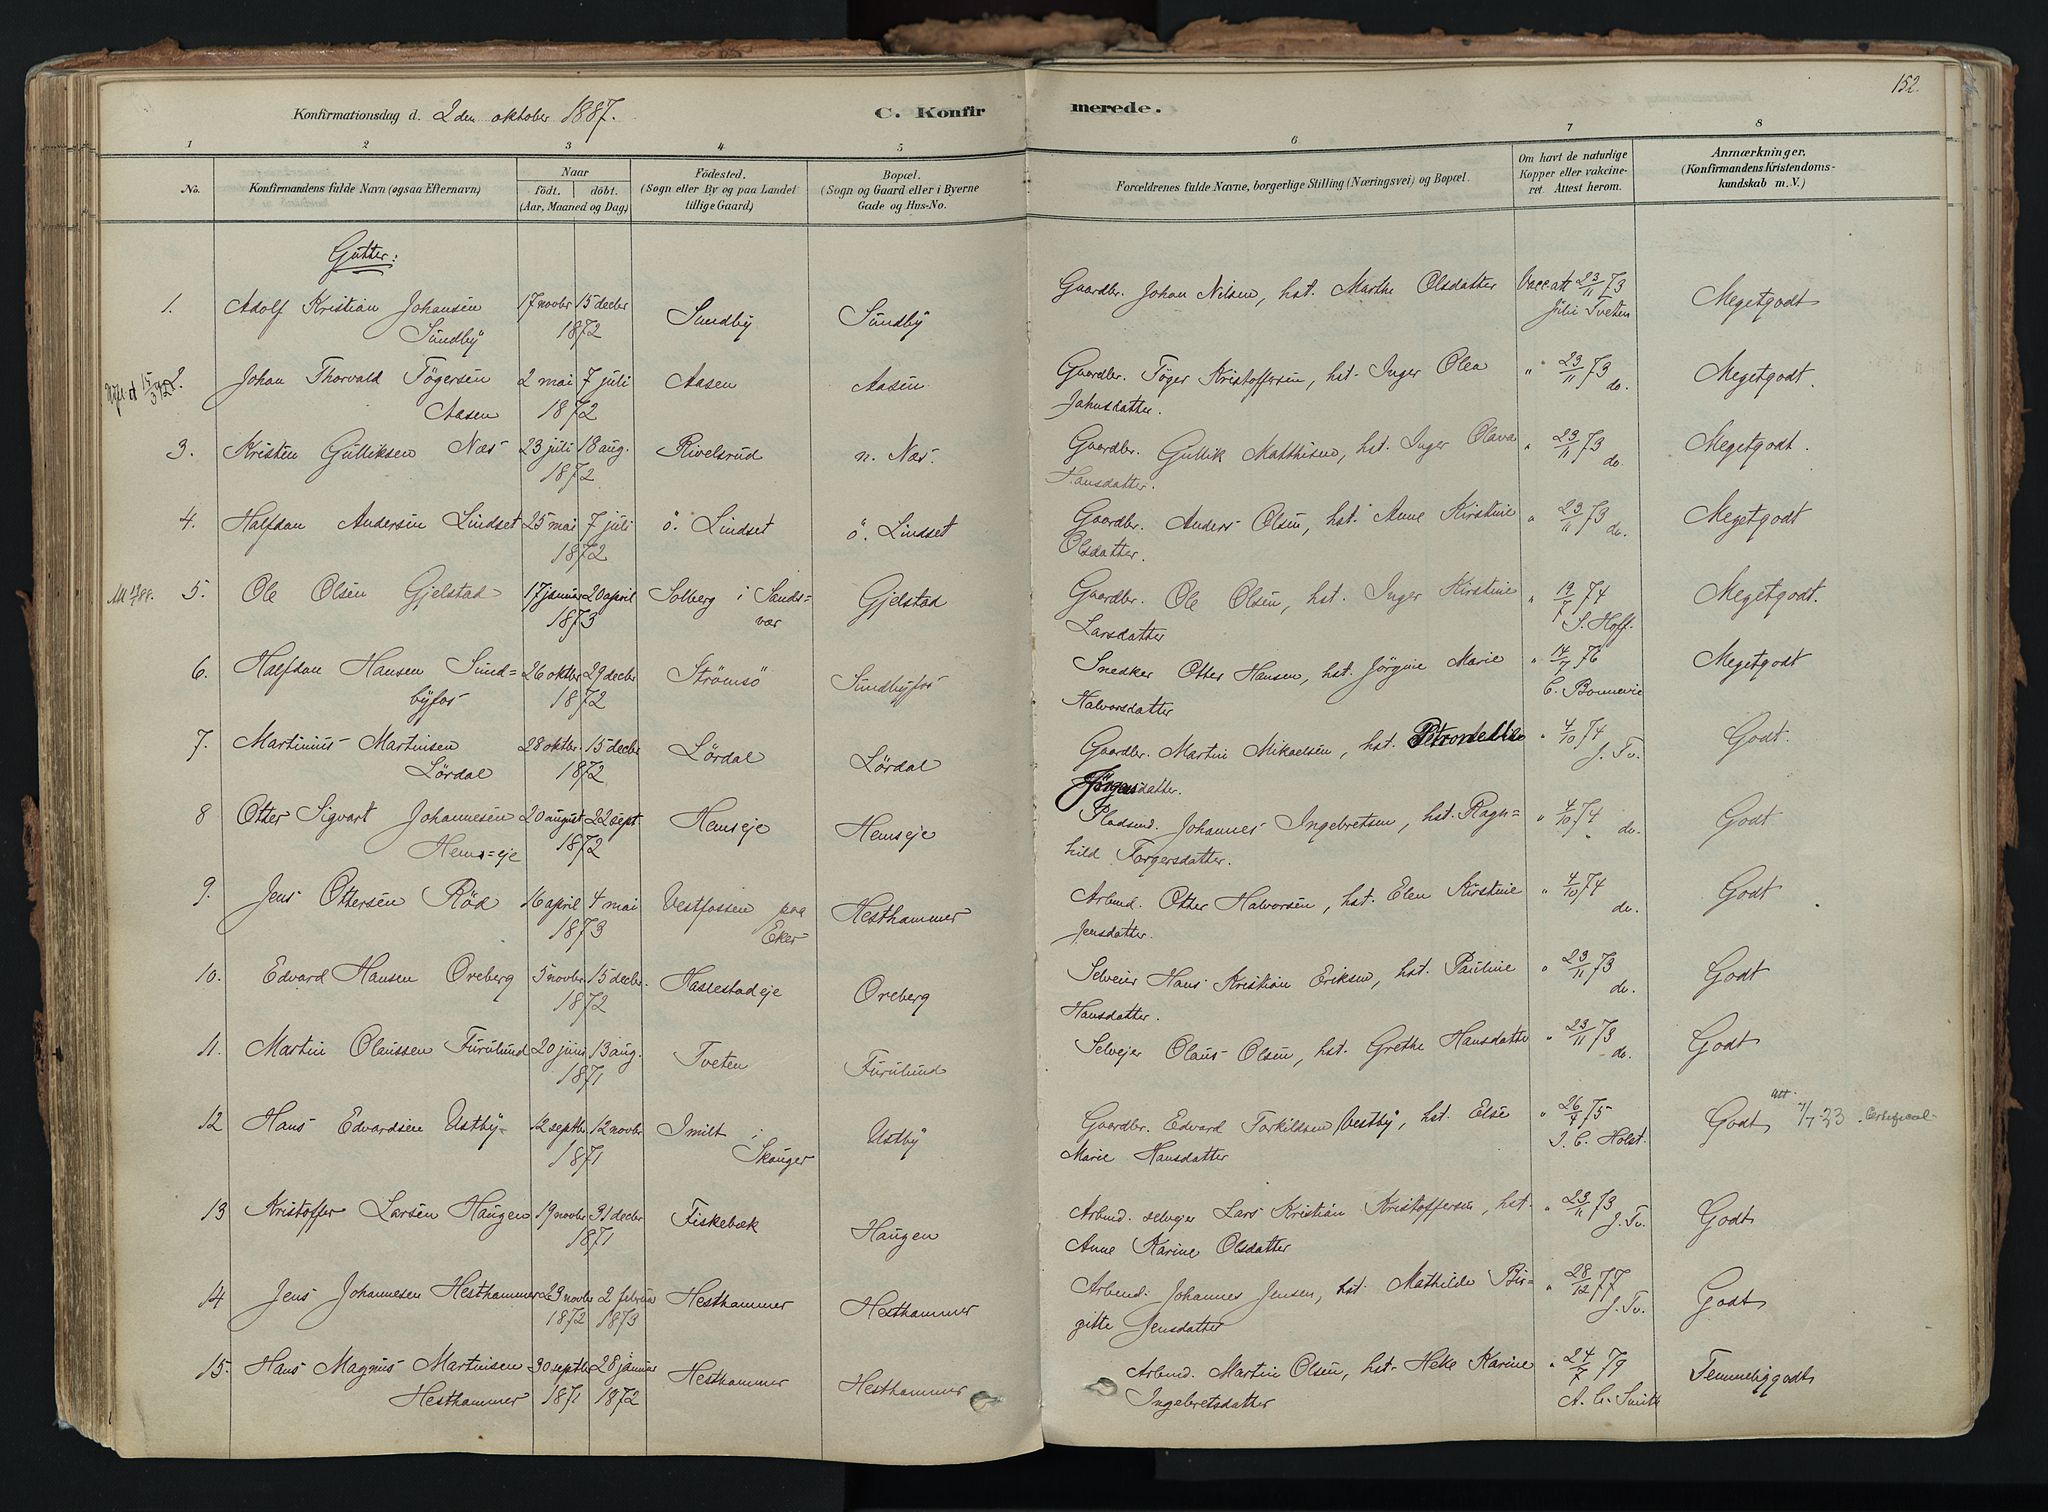 152.
Konfirmationsdag d. 2den oktober 1887. C. Konfirmerede.
1 2 3 4 5 6 7 8
No. Konfirmandens fulde Navn (ogsaa Efternavn) Naar født. døbt. (Aar, Maaned og Dag) Fødested. (Sogn eller By og paa Landet tillige Gaard) Bopæl. (Sogn og Gaard eller i Byerne Gade og Hus-No. Forældrenes fulde Navne, borgerlige Stilling (Næringsvei) og Bopæl. Om havt de naturlige Kopper eller vakcineret. Attest herom. Anmærkninger. (Konfirmandens Kristendomskundskab m. V.)
Gutter:
1. Adolf Kristian Johansen 17 novbr 15 decbr Sundby Sundby Gaardbr. Johan Nilsen, hst. Marthe Olsdatter Vaccatt 23/11 73 Megetgodt
Sundby 1872 Juli Tveten
2. Johan Thorvald Tøgersen 2 mai 7 juli Aasen Aasen Gaardbr. Tøger Kristoffersen, hst. Inger Olea " 23/11 73 do. Megetgodt.
Aasen 1872 Jahnsdatter.
3. Kristen Gulliksen Næs 23 juli 18 aug. Rivelsrud n. Næs. Gaardbr. Gullik Matthisen, hst. Inger Olava " 23/11 73 do. Megetgodt.
1872 Hansdatter.
4. Halfdan Andersen Lindset 25 mai 7 juli ö. Lindset ö. Lindset Gaardbr. Anders Olsen, hst. Anne Kirstine " 23/11 73 do. Megetgodt
1872 Olsdatter.
5. Ole Olsen Gjelstad 17 januar 20 april Solberg i Sands= Gjelstad Gaardbr. Ole Olsen, hst. Inger Kirstine " 19/7 74 Megetgodt.
1873 vær Larsdatter S. Hoff.
6. Halfdan Hansen Sund= 26 oktbr 29 decbr Strömsö Sundbyfos Snedker Otter Hansen, hst. Jörgine Marie " 14/7 76 Megetgodt
byfos 1872 Halvorsdatter C. Bonnevie
7. Martinius Martinsen 28 oktbr. 15 decbr Lördal Lördal Gaardbr. Martin Mikaelsen, hst. Petronelle " 4/10 74 Godt.
Lördal 1872 Jörgensdatter. J. Tv.
8 Otter Sigvart Johannesen 20 august 22 sept. Hemseje Hemseje Pladsmd. Johannes Ingebretsen, hst. Ragn= " 4/10 74 do. Godt
Hems=eje 1872 hild Torgersdatter.
9. Jens Ottersen Röd 16 april 4 mai Vestfossen paa Hesthammer Arbmd. Otter Halvorsen, hst. Elen Kirstine " 4/10 74 do. Godt
1873 Eker Jensdatter.
10. Edvard Hansen Oreberg 5 novbr 15 decbr. Haslestadeje Oreberg Selveier Hans Kristian Eriksen, hst. Pauline " 23/11 73 do. Godt
1872 Hansdatter.
11. Martin Olaussen Furulund 20 juni 13 aug. Tveten Furulund Selvejer Olaus Olsen, hst. Grethe Hansdatter " 23/11 73 do. Godt
1871
12 Hans Edvardsen Vestby 12 septbr 12 novbr Imilt i Vestby Gaardbr. Edvard Torkildsen Vestby, hst. Else " 26/7 75 Godt Att. 7/7 23
1871 Skouger Marie Hansdatter I. C. Holst.
13 Kristoffer Larsen Haugen 19 novbr 31 decbr Fiskebæk Haugen Arbmd. selvejer Lars Kristian Kristoffersen, hst. " 23/11 73 Godt
1871 Anne Karine Olsdatter J. Tv.
14 Jens Johannesen Hesthammer 23 novbr 2 februar Hesthammer Hesthammer Arbmd. Johannes Jensen, hst. Mathilde Bir= " 28/12 77 Godt
1872 1873 gitte Jensdatter J. Tv.
15. Hans Magnus Martinsen 30 septbr 28 januar Hesthammer Hesthammer Arbmd. Martin Olsen, hst. Karine " 24/7 79 Temmeliggodt
Hesthammer 1871 1872 Ingebretsdatter A. C. Smith